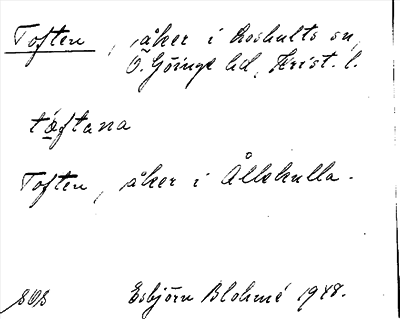 Toften, åker i Loshults sn,
Ö. Göinge hd, Krist. l.
tøftana
Toften, åker i Ållskulla.
Esbjörn Blohmé 1948.